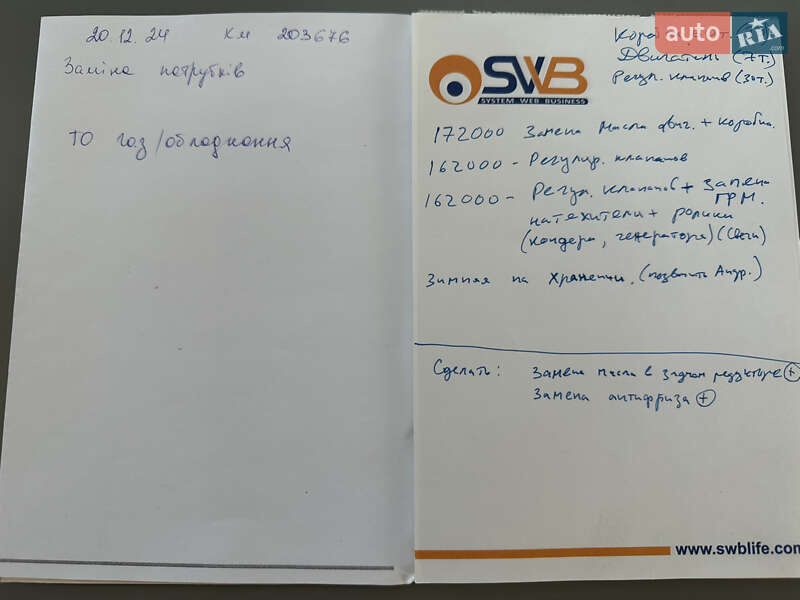 20.12.24 Км 203676
Заміна патрубків
ТО газ/обладнання
auto RIA
.com
SWB
SYSTEM WEB BUSINESS
Двигатель (7т.)
Регул. клапанов (30т.)
172000 Замена масла двиг. + коробка.
162000 - Регулир. клапанов
162000 - Регул. клапанов + замена
ГРМ.
натяжители + ролики
(кондера, генератора) (Свечи)
Зимняя на хранении. (позвонить Андр.)
Сделать: Замена масла в заднем редукторе +
Замена антифриза +
www.swblife.com